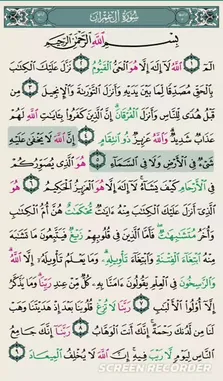 سُورَةُ آلِ عِمْرَان
بِسْمِ ٱللَّهِ ٱلرَّحْمَٰنِ ٱلرَّحِيمِ
الٓمٓ ١ ٱللَّهُ لَآ إِلَٰهَ إِلَّا هُوَ ٱلْحَىُّ ٱلْقَيُّومُ ٢ نَزَّلَ عَلَيْكَ ٱلْكِتَٰبَ
بِٱلْحَقِّ مُصَدِّقًا لِّمَا بَيْنَ يَدَيْهِ وَأَنزَلَ ٱلتَّوْرَىٰةَ وَٱلْإِنجِيلَ ٣ مِن
قَبْلُ هُدًى لِّلنَّاسِ وَأَنزَلَ ٱلْفُرْقَانَ إِنَّ ٱلَّذِينَ كَفَرُوا۟ بِـَٔايَٰتِ ٱللَّهِ لَهُمْ
عَذَابٌ شَدِيدٌ وَٱللَّهُ عَزِيزٌ ذُو ٱنتِقَامٍ ٤ إِنَّ ٱللَّهَ لَا يَخْفَىٰ عَلَيْهِ
شَىْءٌ فِى ٱلْأَرْضِ وَلَا فِى ٱلسَّمَآءِ ٥ هُوَ ٱلَّذِى يُصَوِّرُكُمْ
فِى ٱلْأَرْحَامِ كَيْفَ يَشَآءُ لَآ إِلَٰهَ إِلَّا هُوَ ٱلْعَزِيزُ ٱلْحَكِيمُ ٦ هُوَ
ٱلَّذِىٓ أَنزَلَ عَلَيْكَ ٱلْكِتَٰبَ مِنْهُ ءَايَٰتٌ مُّحْكَمَٰتٌ هُنَّ أُمُّ ٱلْكِتَٰبِ
وَأُخَرُ مُتَشَٰبِهَٰتٌ فَأَمَّا ٱلَّذِينَ فِى قُلُوبِهِمْ زَيْغٌ فَيَتَّبِعُونَ مَا تَشَٰبَهَ مِنْهُ
ٱبْتِغَآءَ ٱلْفِتْنَةِ وَٱبْتِغَآءَ تَأْوِيلِهِۦ وَمَا يَعْلَمُ تَأْوِيلَهُۥٓ إِلَّا ٱللَّهُ
وَٱلرَّٰسِخُونَ فِى ٱلْعِلْمِ يَقُولُونَ ءَامَنَّا بِهِۦ كُلٌّ مِّنْ عِندِ رَبِّنَا وَمَا يَذَّكَّرُ
إِلَّآ أُو۟لُوا۟ ٱلْأَلْبَٰبِ ٧ رَبَّنَا لَا تُزِغْ قُلُوبَنَا بَعْدَ إِذْ هَدَيْتَنَا وَهَبْ
لَنَا مِن لَّدُنكَ رَحْمَةً إِنَّكَ أَنتَ ٱلْوَهَّابُ ٨ رَبَّنَآ إِنَّكَ جَامِعُ
ٱلنَّاسِ لِيَوْمٍ لَّا رَيْبَ فِيهِ إِنَّ ٱللَّهَ لَا يُخْلِفُ ٱلْمِيعَادَ ٩
SCREEN RECORDER